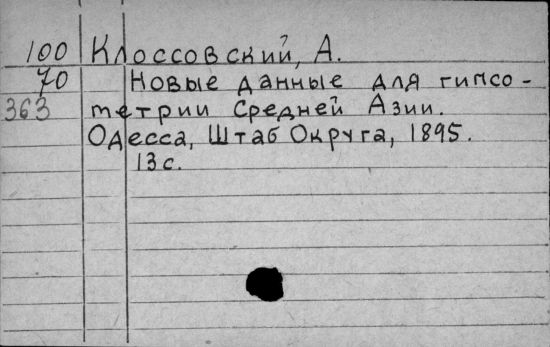 100 Клоссовский, А.
70 Новые данные для гипсо-
363 тетрии Средней Азии.
Одесса, Штаб Округа, 1895.
13 с.